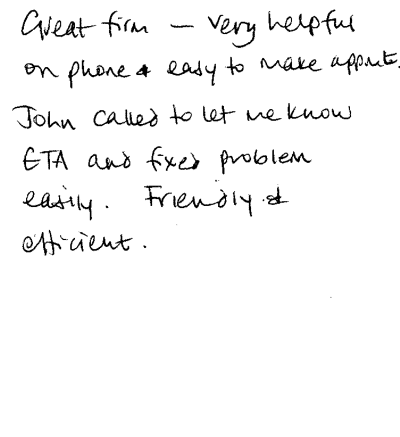 Great firm — very helpful
on phone & easy to make appmt.
John called to let me know
ETA and fixed problem
easily. Friendly &
efficient.